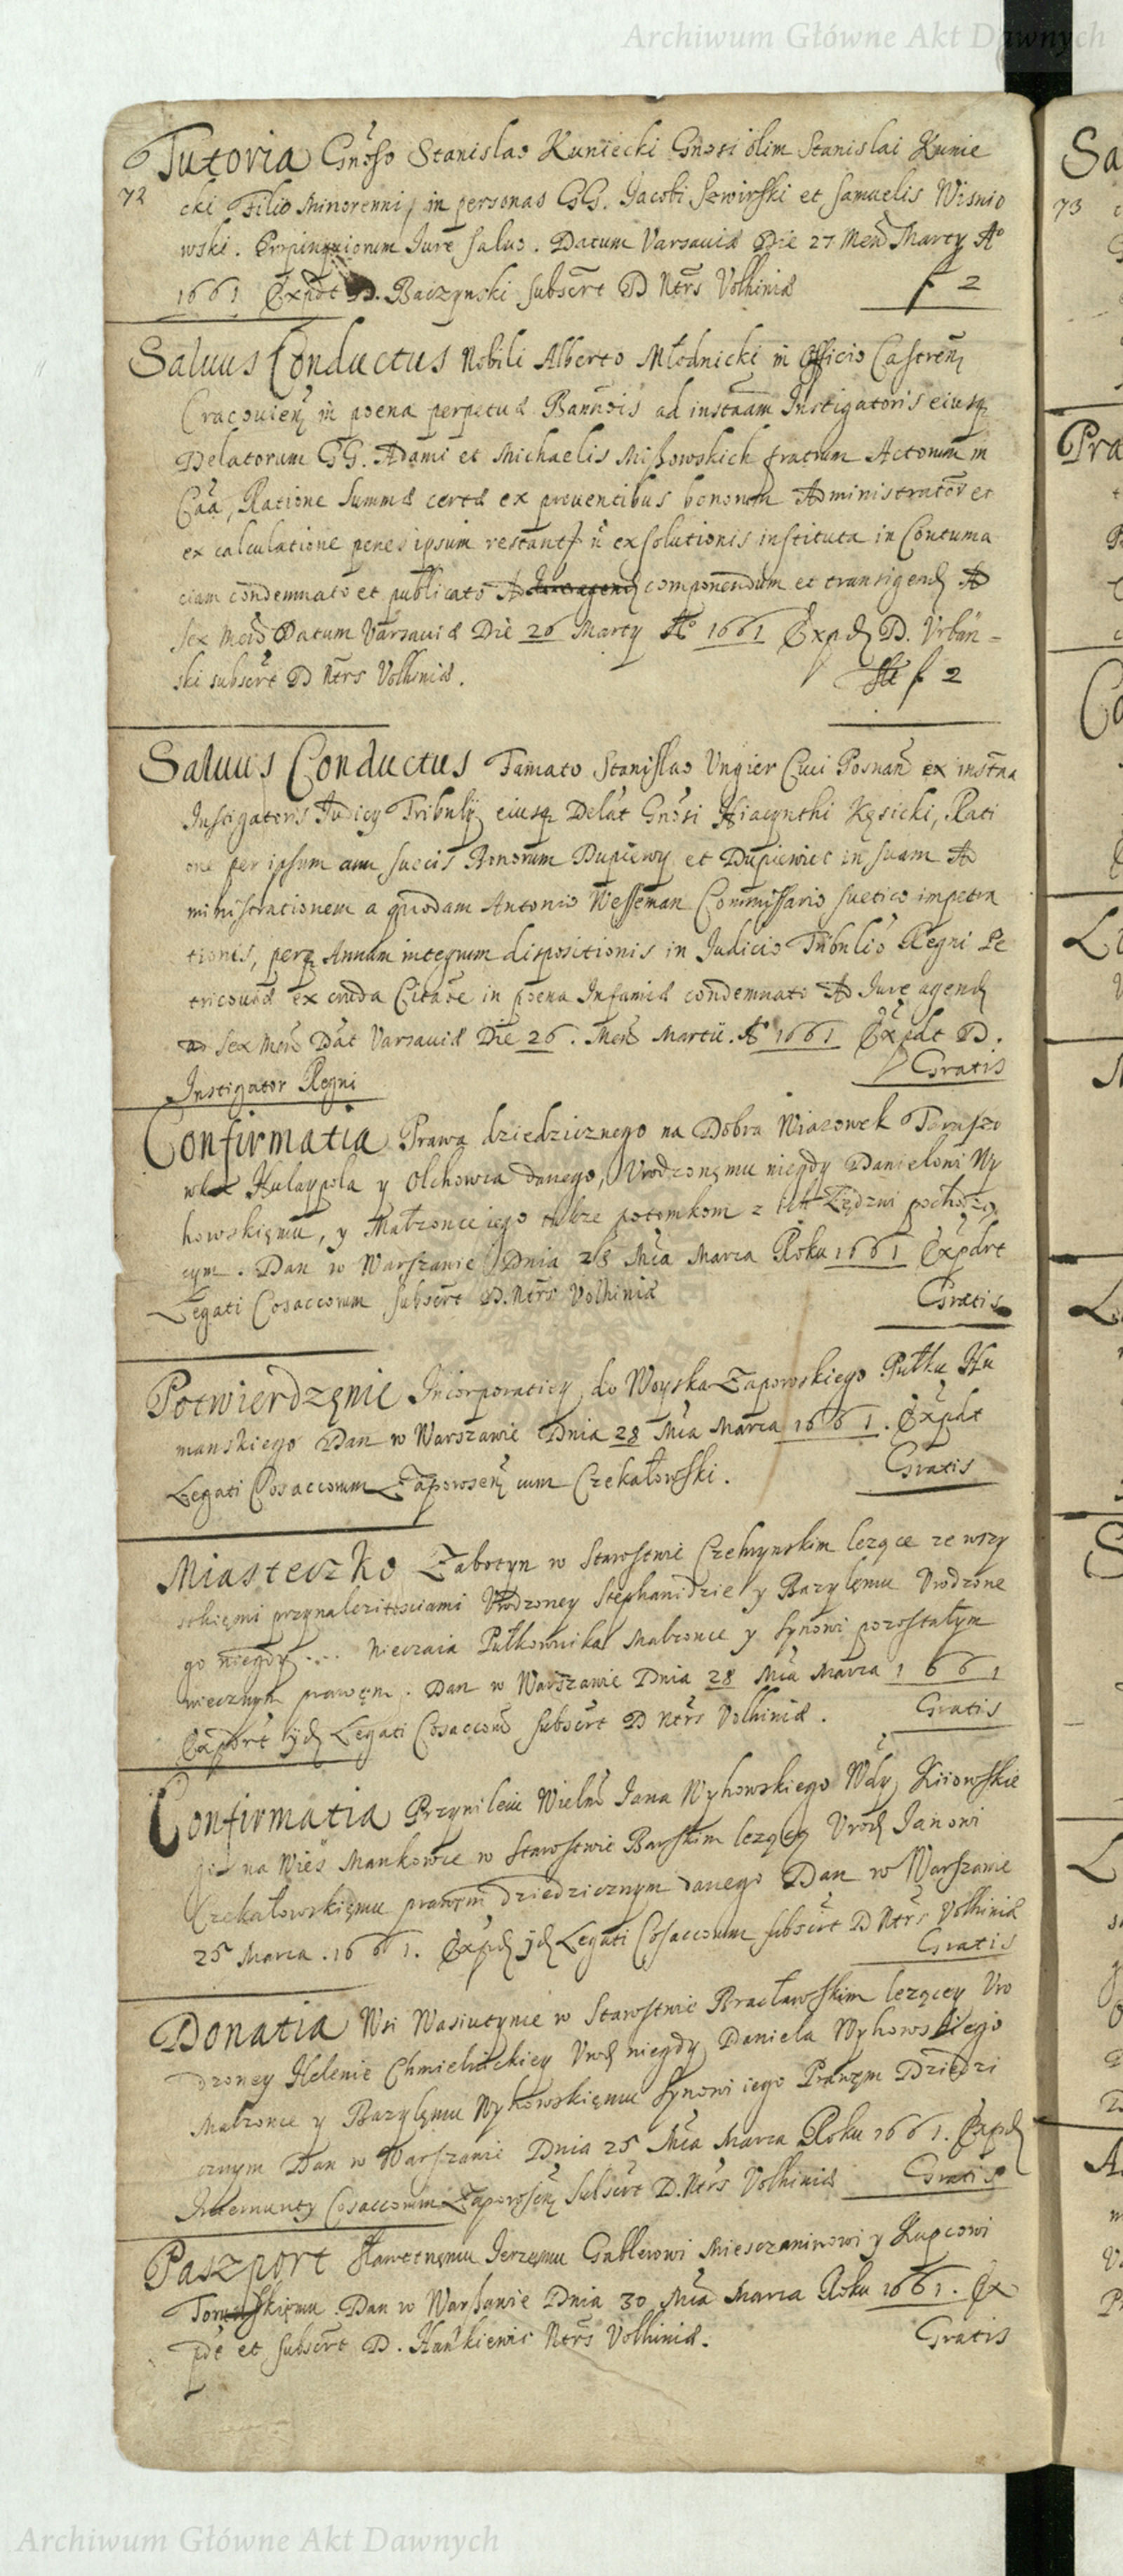 Archiwum Główne Akt Dawnych
Tutoria Gnoso Stanislao Kuniecki Gnosi olim Stanislai Kunie
72 cki Filio Minorenni, in personas GG. Jacobi Szwirski et Samuelis Wisnio
wski. Propinquiorum Jure saluo. Datum Varsauiæ Die 27 Mens Marty Ao
1661 Expdt D. Baczynski subscrt D Ntrs Volhiniæ f 2
Saluus Conductus Nobili Alberto Młodnicki in Officio Castren
Cracouien in poena perpetuæ Bannois ad instaam Instigatoris eiusq
Delatorum GG. Adami et Michaelis Miszowskich fratrum Actorum in
Caa, Ratione Summæ certæ ex prouentibus bonorum Administrator et
ex calculatione penes ipsum restant n exsolutionis instituta in Contuma
ciam condemnato et publicato Ad componendum et transigend Ad
sex Mens Datum Varsauiæ Die 26 Marty Ao 1661 Expd D. Urban-
ski subscrt D Ntrs Volhiniæ. f 2
Saluus Conductus Famato Stanislao Ungier Ciui Posnan ex instaa
Instigatoris Judicy Tribunly eiusq Delat Gnosi Hiacynthi Kęsicki, Rati
one per ipsum cum suecis Bonorum Dupiewy et Dupiewiec in suam Ad
ministrationem a quodam Antonio Wesseman Commissario suetico impetra
tionis, perq Annum integrum dispositionis in Judicio Tribnlio Regni Pe
tricouiæ ex cruda Citaoe in poena Infamiæ condemnato Ad Jure agend
ad sex Mens Dat Varsauiæ Die 26. Mens Martii. Ao 1661 Expdt D.
Instigator Regni Gratis
Confirmatia Prawa dziedzicznego na Dobra Wiazowek Taraszo
wke Hulaypola y Olchowca danego, Vrodzonęmu niegdy Danielowi Wy
howskięmu, y Małzonce iego także potomkom z ich Lędzwi pochodzą
cym. Dan w Warszawie Dnia 28 Mca Marca Roku 1661 Expdrt
Legati Cosaccorum subscrt D. Ntrs Volhiniæ Gratis
Potwierdzęnie Incorporatiey do Woyska Zaporoskiego Pułku Hu
manskiego Dan w Warszawie Dnia 28 Mca Marca 1661. Expdt
Legati Cosaccorum Zaporosen cum Czekałowski. Gratis
Miasteczko Zabotyn w Starostwie Czehrynskim lezące ze wszy
stkięmi przynalezitosciami Vrodzoney Stephanidzie y Bazylęmu Vrodzone
go niegdy .... Nieczaia Pułkownika Malzonce y synowi pozostałym
wiecznym prawęm. Dan w Warszawie Dnia 28 Mca Marca 1661
Expdrt ijd Legati Cosaccoru subscrt D Ntrs Volhiniæ. Gratis
Confirmatia Przywileiu Wielm Jana Wyhowskiego Wdy Kiiowskie
go na Wies Mankowce w Starostwie Barskim lezący Vrod Janowi
Czekałowskięmu prawęm dziedzicznym danego Dan w Warszawie
25 Marca. 1661. Expd ijd Legati Cosaccorum subscrt D Ntrs Volhiniæ
Gratis
Donatia Wsi Wasiutynie w Starostwie Bracławskim lezącey Vro
dzoney Helenie Chmielnickiey Vrod niegdy Daniela Wyhowskiego
Malzonce y Bazylęmu Wyhowskięmu synowi iego Prawęm Dziedzi
cznym Dan w Warszawie Dnia 25 Mca Marca Roku 1661. Expd
Internunty Cosaccorum Zaporosen Subscrt D. Ntrs Volhiniæ Gratis
Paszport Sławetnęmu Jerzęmu Gablerowi Miesczaninowi y Kupcowi
Dan w Warszawie Dnia 30 Mca Marca Roku 1661. Ex
pdt et subscrt D. Hankiewic Ntrs Volhiniæ. Gratis
73
Archiwum Główne Akt Dawnych